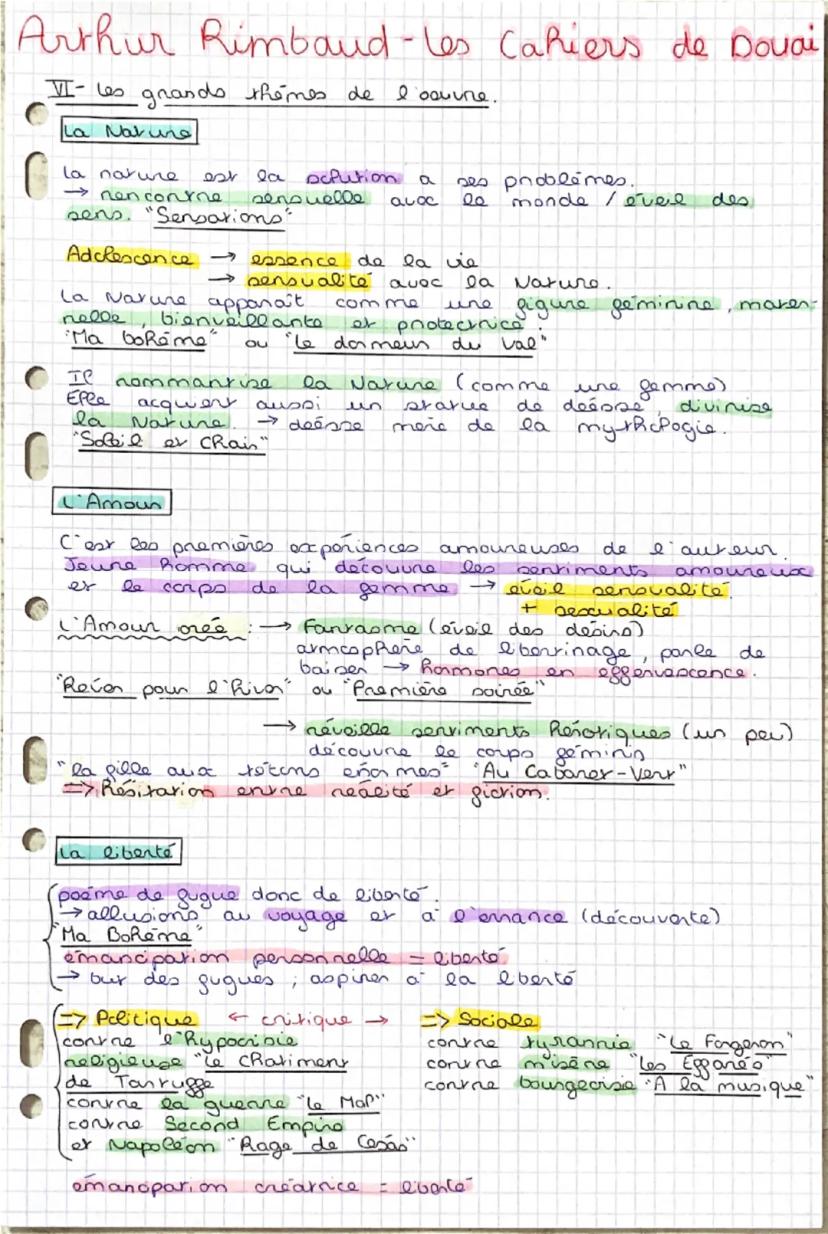 Arthur Rimbaud - Les Cahiers de Douai
VI- Les grands thèmes de l'oeuvre.
La Nature
La nature est la solution a ses problèmes.
→ rencontre sensuelle avec le monde / éveil des
sens. "Sensations"
Adolescence → essence de la vie
→ sensualité avec la Nature.
La Nature apparaît comme une figure féminine, mater-
nelle, bienveillante et protectrice.
"Ma bohème" ou "le dormeur du val"
Il rommantise la Nature (comme une femme)
Elle acquert aussi un statue de déesse, divinise
la Nature. → déesse mère de la mythologie.
"Soleil et Chair"
L'Amour
C'est les premières expériences amoureuses de l'auteur.
Jeune homme qui découvre les sentiments amoureux
et le corps de la femme → éveil sensualité.
+ sexualité
L'Amour créé : → Fantasme (éveil des désirs)
atmosphère de libertinage, parle de
baiser → hormones en effervescence.
"Rêver pour l'hiver" ou "Première soirée"
→ réveille sentiments hérotiques (un peu)
découvre le corps féminin
"la fille aux tétons énormes" "Au Cabaret-Vert"
=> hésitation entre réalité et fiction.
La liberté
poème de fugue donc de liberté.
→ allusions au voyage et à l'errance (découverte)
"Ma Bohème"
émancipation personnelle = liberté
→ but des fugues ; aspirer à la liberté
=> Politique ← critique → => Sociale
contre l'hypocrisie contre tyrannie "Le Forgeron"
religieuse "le Chatiment contre misère "Les Effarés"
de Tartuffe contre bourgeoisie "A la musique"
contre la guerre "Le Mal"
contre Second Empire
et Napoléon "Rage de Césas"
émancipation créatrice = liberté